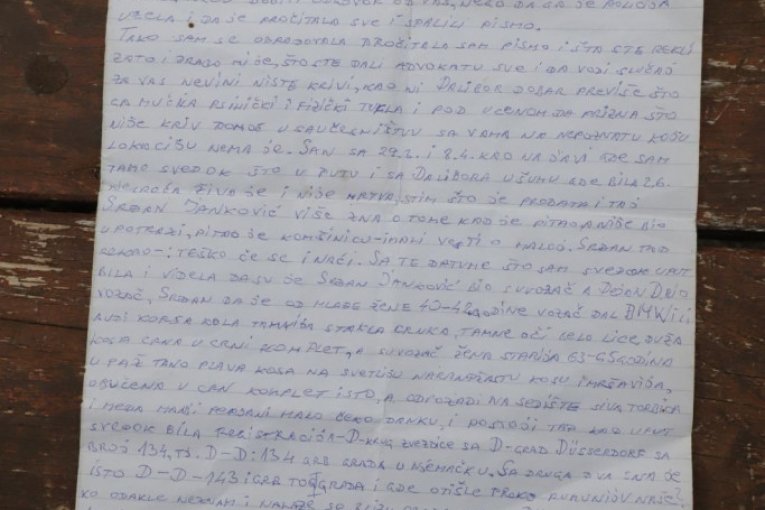 UZELA I DA JE PROČITALA SVE I SPALILI PISMO.
TAKO SAM SE OBRADOVALA PROČITALA SAM PISMO I ŠTA STE REKLI
ZATO I DRAGO MI JE, ŠTO STE DALI ADVOKATU SVE I DA VODI SLUČAJ
ZA VAS NEVINI NISTE KRIVI, KAO NI DALIBOR DOBAR PREVIŠE ŠTO
GA MUČKA PSIHIČKI I FIZIČKI TUKLA I POD UCENOM DA PRIZNA ŠTO
NIJE KRIV DANAS U SAUČESNIŠTVU SA VAMA NA NEPOZNATU KOJU
LOKACIJU NEMA JE. SAN SA 29.2. I 8.4. KAO NA JAVI GDE SAM
TAMO SVEDOK ŠTO U PUTU I SA DALIBORA U ŠUMU GDE BILA 2.6.
ŽIVA JE I NIJE MRTVA, STIM ŠTO JE PRODATA I TAJ
SRĐAN JANKOVIĆ VIŠE ZNA O TOME KAD JE PITAO, A NIJE BIO
U POTRAZI, PITAO JE KOMŠINICU-IMALI VESTI O MALOJ. SRĐAN TAD
REKAO-: TEŠKO ĆE SE I NAĆI. SA TE DATUME ŠTO SAM SVEDOK UPUT
BILA I VIDELA DA SU JE SRĐAN JANKOVIĆ BIO SUVOZAČ A DEJAN D. BIO
VOZAČ, SRĐAN DA JE OD MLAĐE ŽENE 40-42 GODINE VOZAČ DAL BMW ILI
AUDI KORSA KOLA TAMNIJA STAKLA CRNKA, TAMNE OČI, CELO LICE, DUŽA
KOSA CRNA U CRNI KOMPLET, A SUVOZAČ ŽENA STARIJA 63-65 GODINA
PLAVA KOSA NA SVETLIJU NARANDŽASTU KOSU I MRŠAVIJA,
OBUČENA U CRN KOMPLET ISTO, A ODPOZADI NA SEDIŠTE SIVA TORBICA
I MEDA MANJI MALO DANKU, I POSTOJI TAD KAD UPUT
SVEDOK BILA REGISTRACIJA-D-KRUG ZVEZDICE SA D-GRAD DÜSSERDORF SA
BROJ 134, TJ. D-D: 134 GRB GRADA U NJEMAČKU. SA DRUGA DVA SNA JE
ISTO D-D-143 I GRB TOG GRADA I GDE OTIŠLE
KO ODAKLE NEZNAM I NALAZE SE